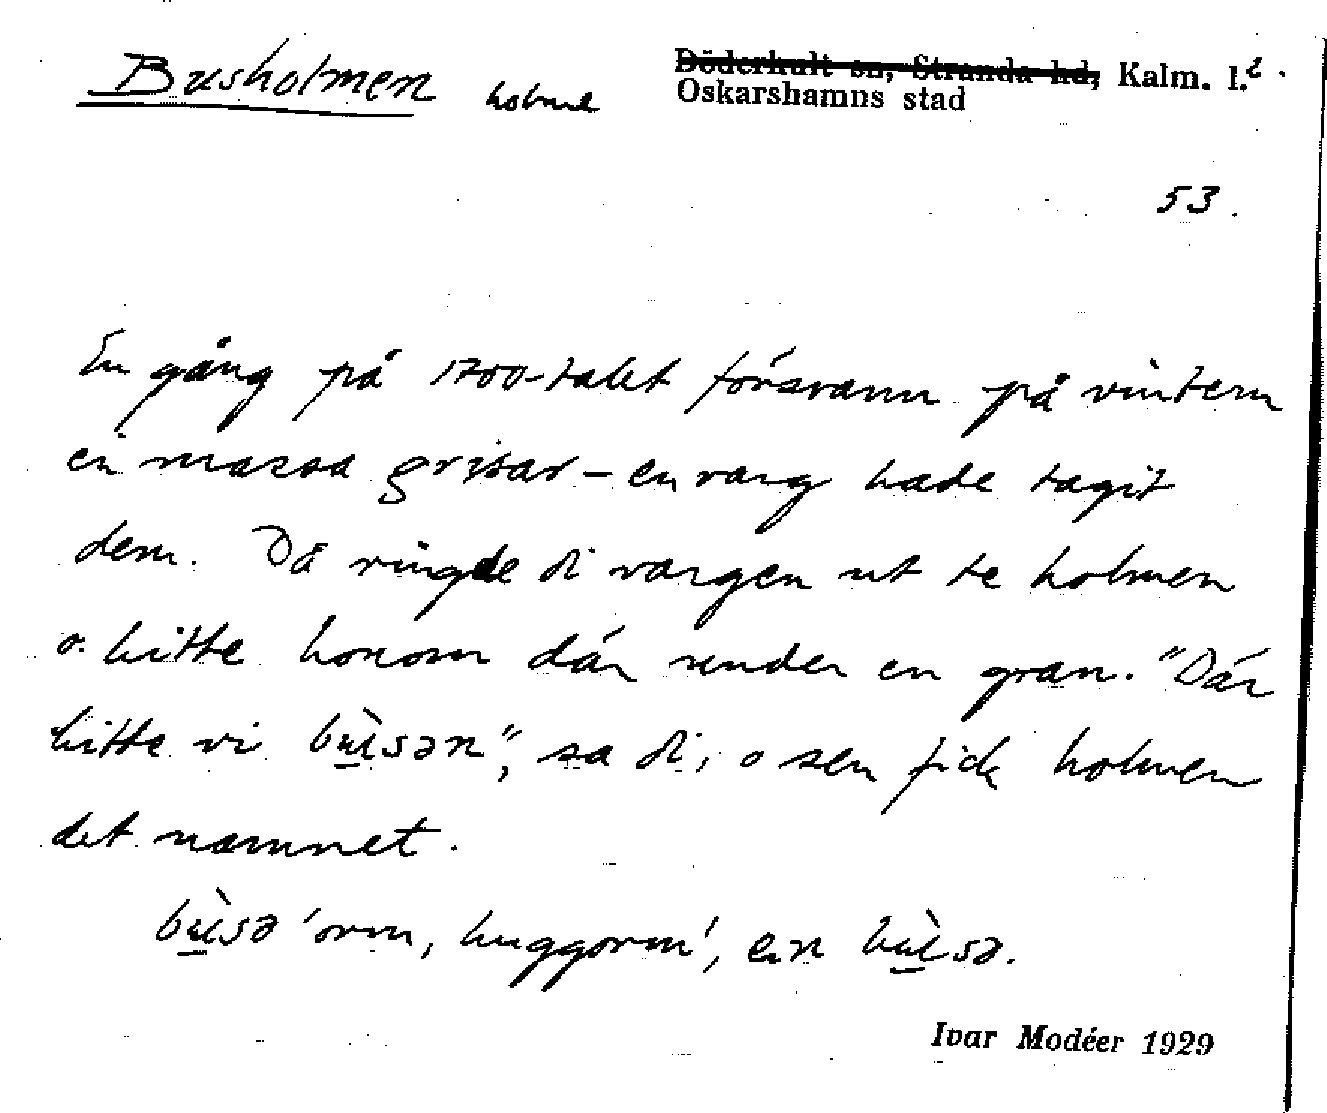 Busholmen holme Döderhult sn, Stranda hd, Kalm. l.
Oskarshamns stad
53.
En gång på 1700-talet försvann på vintern
en massa grisar – en varg hade tagit
dem. Då ringde di vargen ut te holmen
o. hitte honom där under en gran. "Där
hitte vi bù̱sən", sa di, o sen fick holmen
det namnet.
bù̱sə 'orm, huggorm', en bù̱sə.
Ivar Modéer 1929